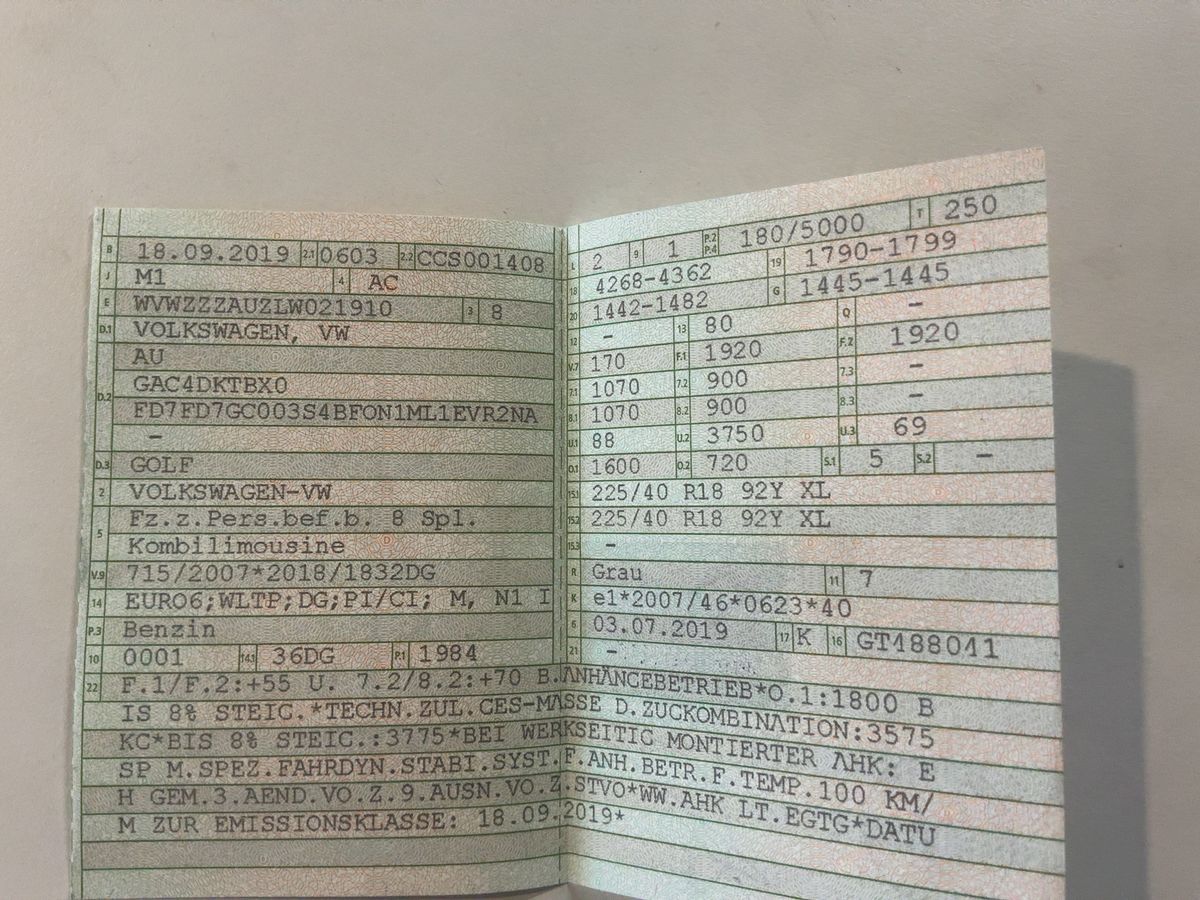 B 18.09.2019 2.1 0603 2.2 CCS001408
J M1 4 AC
E WVWZZZAUZLW021910 3 8
D.1 VOLKSWAGEN, VW
AU
D.2 GAC4DKTBX0
FD7FD7GC003S4BFON1ML1EVR2NA
–
D.3 GOLF
2 VOLKSWAGEN-VW
5 Fz.z.Pers.bef.b. 8 Spl.
Kombilimousine
V.9 715/2007*2018/1832DG
14 EURO6;WLTP;DG;PI/CI; M, N1 I
P.3 Benzin
10 0001 14.1 36DG P.1 1984
L 2 9 1 P.2 P.4 180/5000 T 250
18 4268-4362 19 1790-1799
20 1442-1482 G 1445-1445
12 – 13 80 Q –
V.7 170 F.1 1920 F.2 1920
7.1 1070 7.2 900 7.3 –
8.1 1070 8.2 900 8.3 –
U.1 88 U.2 3750 U.3 69
O.1 1600 O.2 720 S.1 5 S.2 –
15.1 225/40 R18 92Y XL
15.2 225/40 R18 92Y XL
15.3 –
R Grau 11 7
K e1*2007/46*0623*40
6 03.07.2019 17 K 16 GT488041
21 –
22 F.1/F.2:+55 U. 7.2/8.2:+70 B.ANHÄNGEBETRIEB*O.1:1800 B
IS 8% STEIG.*TECHN.ZUL.GES-MASSE D.ZUGKOMBINATION:3575
KG*BIS 8% STEIG.:3775*BEI WERKSEITIG MONTIERTER AHK: E
SP M.SPEZ.FAHRDYN.STABI.SYST.F.ANH.BETR.F.TEMP.100 KM/
H GEM.3.AEND.VO.Z.9.AUSN.VO.Z.STVO*WW.AHK LT.EGTG*DATU
M ZUR EMISSIONSKLASSE: 18.09.2019*